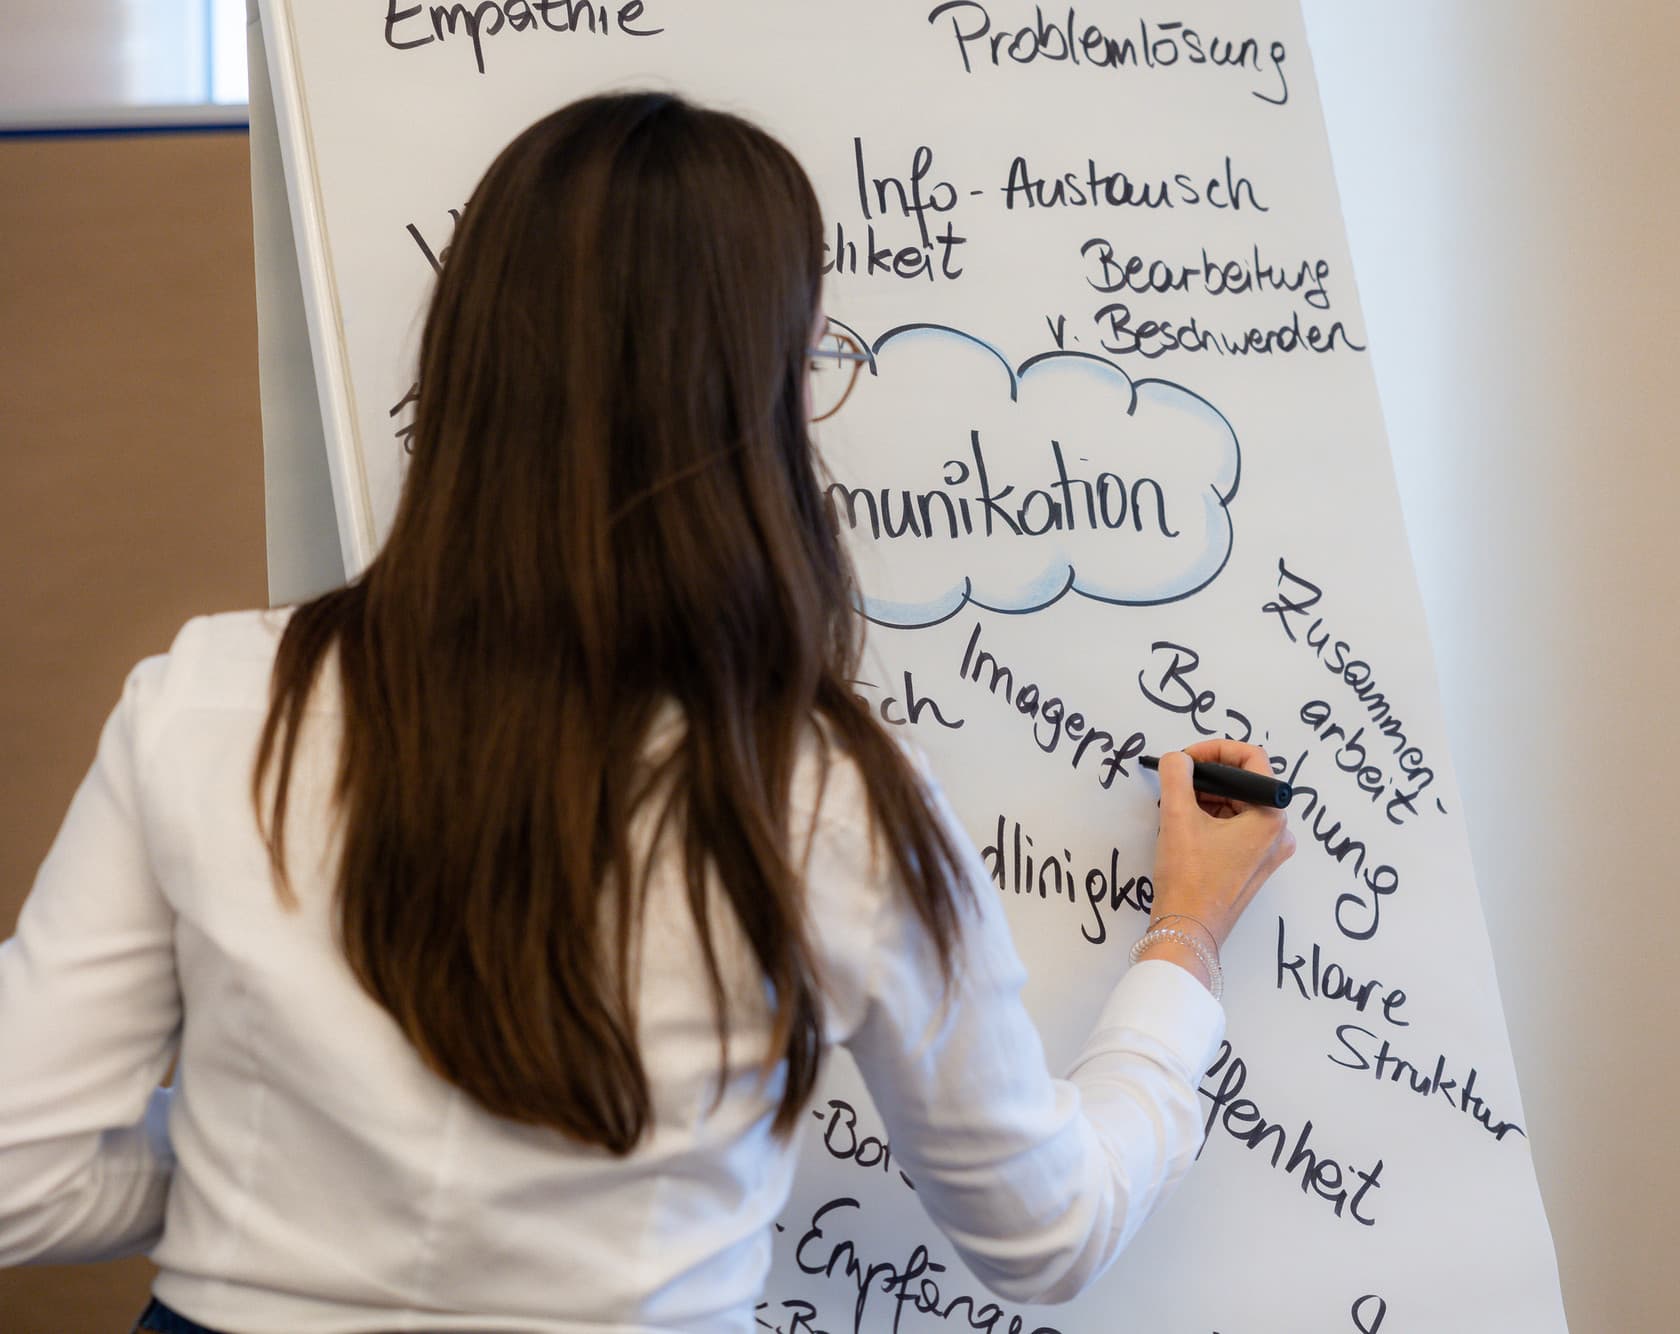 Empathie
Problemlösung
Info-Austausch
chkeit
Bearbeitung
v. Beschwerden
munikation
Zusammen-
arbeit
Beziehung
Imagepf
ch
dlinigke
klare
Struktur
ffenheit
-Bot
-Empfänge